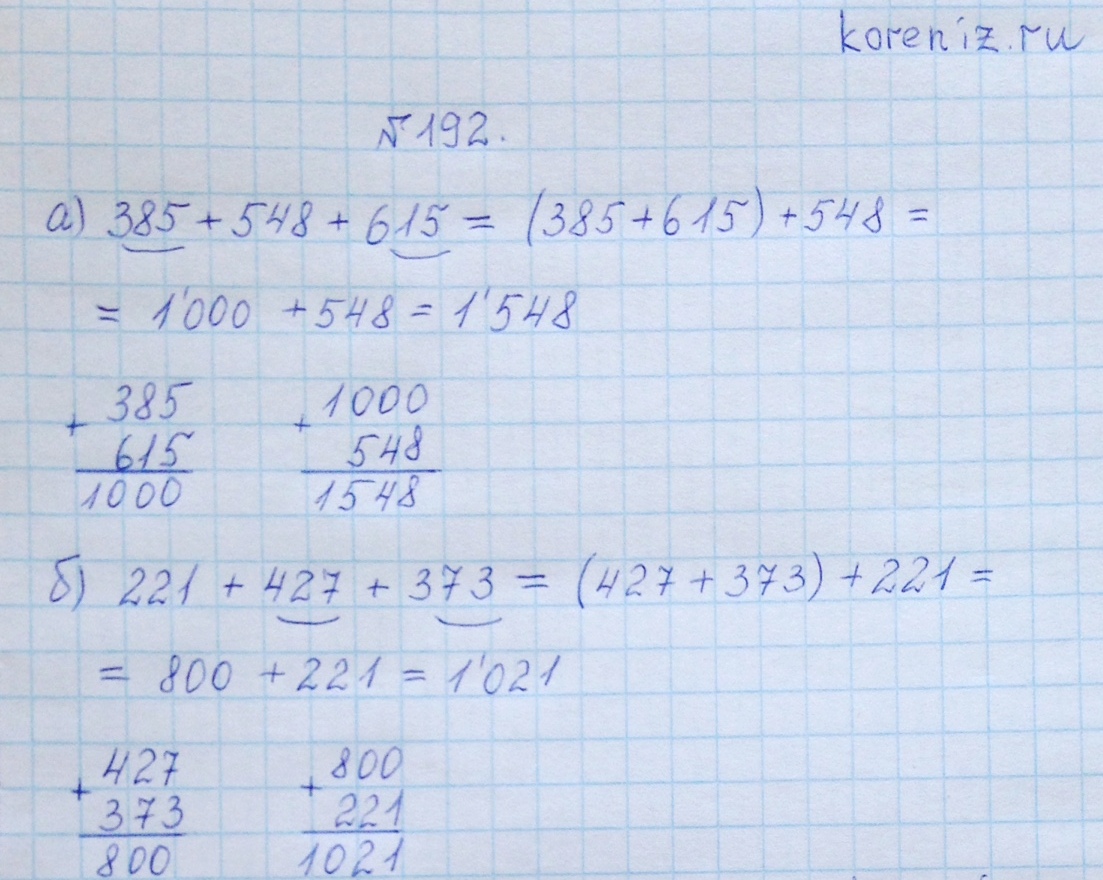 koreniz.ru
№192.
а) 385 + 548 + 615 = (385+615)+548 =
= 1'000 + 548 = 1'548
+ 385 + 1000
615 548
1000 1548
б) 221 + 427 + 373 = (427+373)+221 =
= 800 + 221 = 1'021
+ 427 + 800
373 221
800 1021